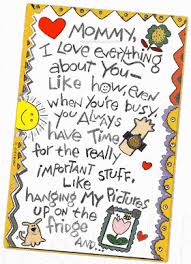 Mommy,
I Love everything
about You—
Like how, even
when You're busy,
you Always
have Time
for the really
important stuff,
Like
hanging My Pictures
up on the
fridge
and...